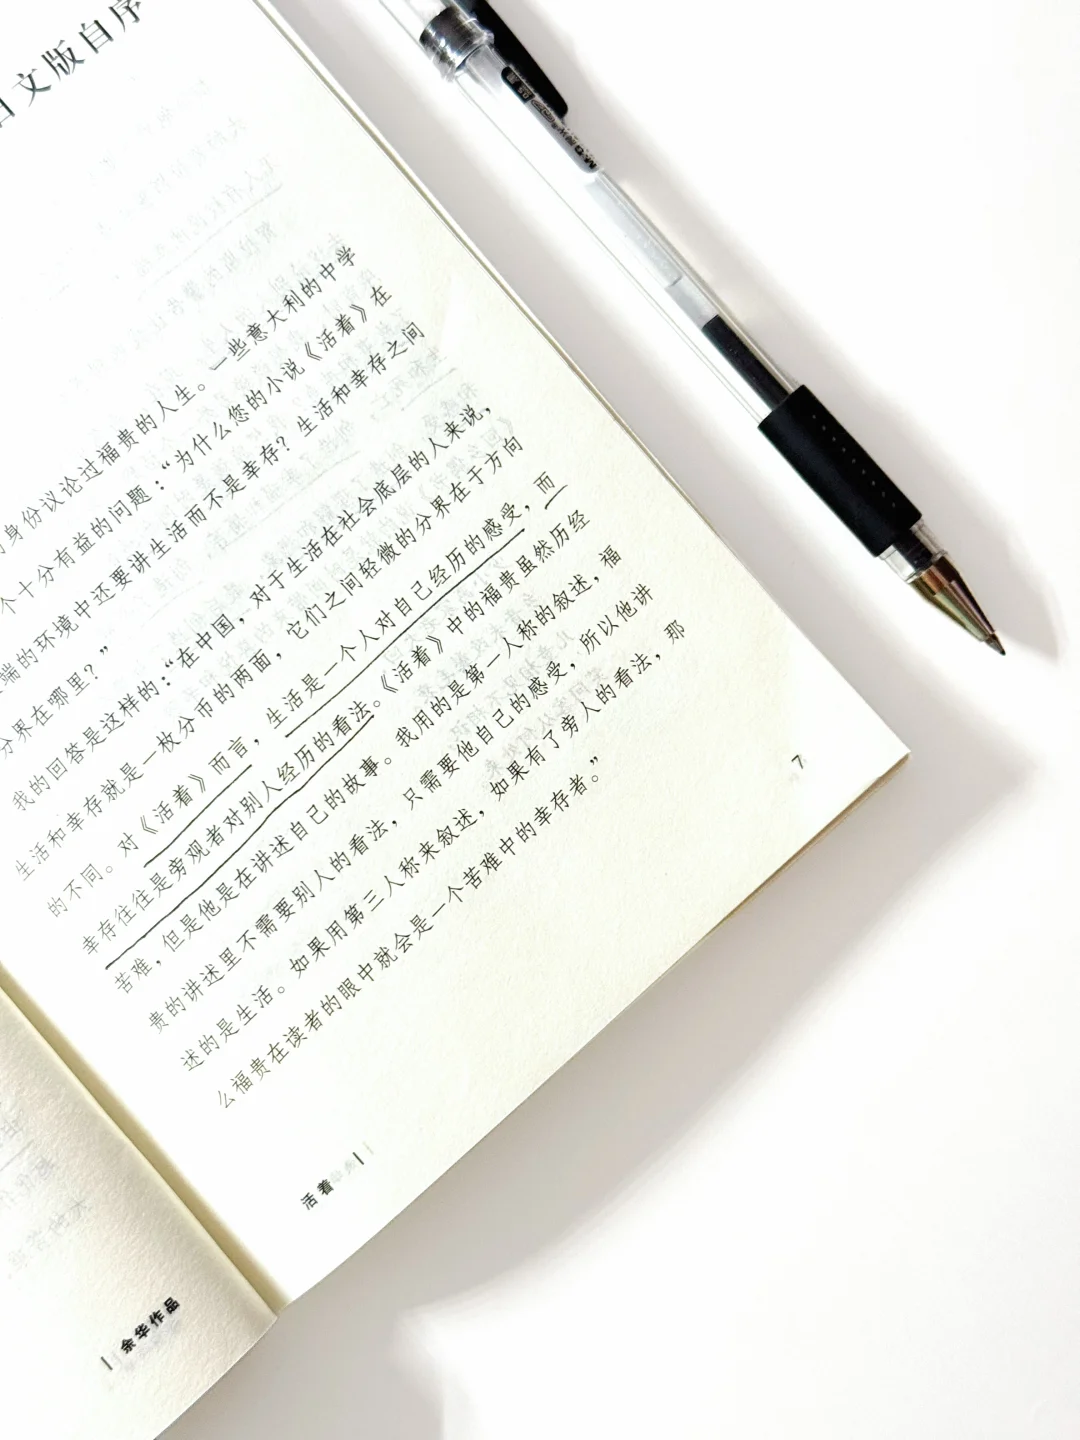 日文版自序
身份议论过福贵的人生。一些意大利的中学
个十分有益的问题：“为什么您的小说《活着》在
端的环境中还要讲生活而不是幸存？生活和幸存之间
分界在哪里？”
我的回答是这样的：“在中国，对于生活在社会底层的人来说，
生活和幸存就是一枚分币的两面，它们之间轻微的分界在于方向
的不同。对《活着》而言，生活是一个人对自己经历的感受，而
幸存往往是旁观者对别人经历的看法。《活着》中的福贵虽然历经
苦难，但是他是在讲述自己的故事。我用的是第一人称的叙述，福
贵的讲述里不需要别人的看法，只需要他自己的感受，所以他讲
述的是生活。如果用第三人称来叙述，如果有了旁人的看法，那
么福贵在读者的眼中就会是一个苦难中的幸存者。”
7
活着
余华作品
M&G